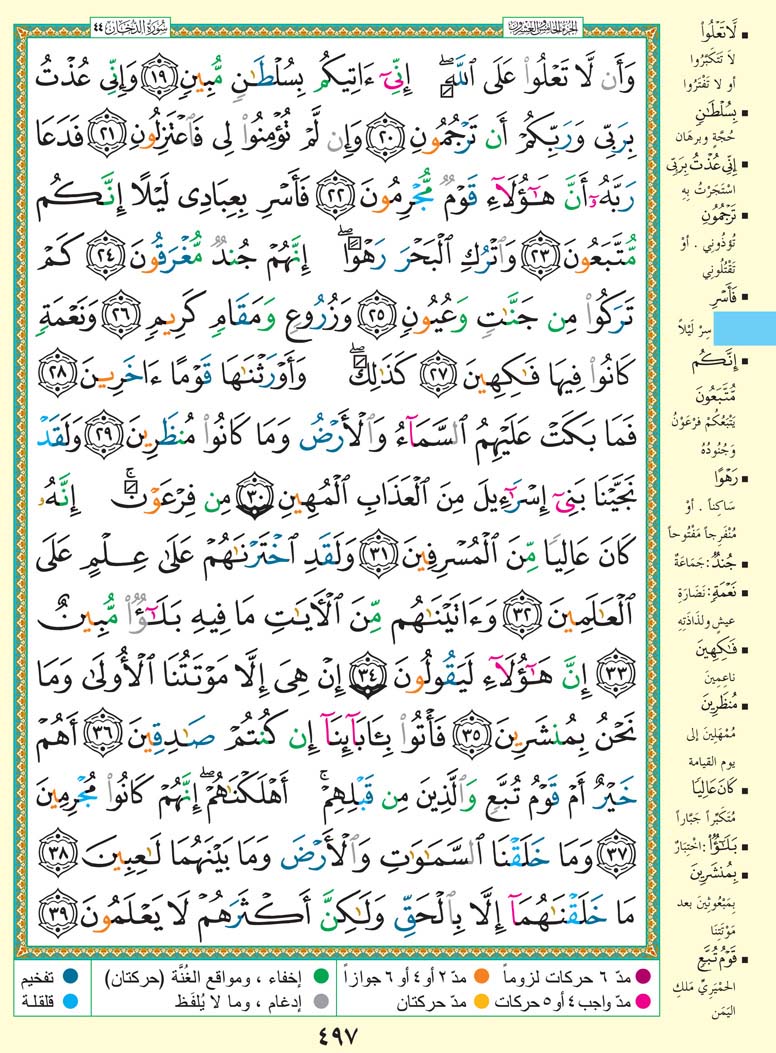 سُورَةُ الدُّخَانِ ٤٤
الجزء الخامس والعشرون
وَأَن لَّا تَعْلُوا۟ عَلَى ٱللَّهِ ۖ إِنِّىٓ ءَاتِيكُم بِسُلْطَـٰنٍ مُّبِينٍ ١٩ وَإِنِّى عُذْتُ
بِرَبِّى وَرَبِّكُمْ أَن تَرْجُمُونِ ٢٠ وَإِن لَّمْ تُؤْمِنُوا۟ لِى فَٱعْتَزِلُونِ ٢١ فَدَعَا
رَبَّهُۥٓ أَنَّ هَـٰٓؤُلَآءِ قَوْمٌ مُّجْرِمُونَ ٢٢ فَأَسْرِ بِعِبَادِى لَيْلًا إِنَّكُم
مُّتَّبَعُونَ ٢٣ وَٱتْرُكِ ٱلْبَحْرَ رَهْوًا ۖ إِنَّهُمْ جُندٌ مُّغْرَقُونَ ٢٤ كَمْ
تَرَكُوا۟ مِن جَنَّـٰتٍ وَعُيُونٍ ٢٥ وَزُرُوعٍ وَمَقَامٍ كَرِيمٍ ٢٦ وَنَعْمَةٍ
كَانُوا۟ فِيهَا فَـٰكِهِينَ ٢٧ كَذَٰلِكَ ۖ وَأَوْرَثْنَـٰهَا قَوْمًا ءَاخَرِينَ ٢٨
فَمَا بَكَتْ عَلَيْهِمُ ٱلسَّمَآءُ وَٱلْأَرْضُ وَمَا كَانُوا۟ مُنظَرِينَ ٢٩ وَلَقَدْ
نَجَّيْنَا بَنِىٓ إِسْرَٰٓءِيلَ مِنَ ٱلْعَذَابِ ٱلْمُهِينِ ٣٠ مِن فِرْعَوْنَ ۚ إِنَّهُۥ
كَانَ عَالِيًا مِّنَ ٱلْمُسْرِفِينَ ٣١ وَلَقَدِ ٱخْتَرْنَـٰهُمْ عَلَىٰ عِلْمٍ عَلَى
ٱلْعَـٰلَمِينَ ٣٢ وَءَاتَيْنَـٰهُم مِّنَ ٱلْـَٔايَـٰتِ مَا فِيهِ بَلَـٰٓؤٌا۟ مُّبِينٌ
٣٣ إِنَّ هَـٰٓؤُلَآءِ لَيَقُولُونَ ٣٤ إِنْ هِىَ إِلَّا مَوْتَتُنَا ٱلْأُولَىٰ وَمَا
نَحْنُ بِمُنشَرِينَ ٣٥ فَأْتُوا۟ بِـَٔابَآئِنَآ إِن كُنتُمْ صَـٰدِقِينَ ٣٦ أَهُمْ
خَيْرٌ أَمْ قَوْمُ تُبَّعٍ وَٱلَّذِينَ مِن قَبْلِهِمْ ۚ أَهْلَكْنَـٰهُمْ ۖ إِنَّهُمْ كَانُوا۟ مُجْرِمِينَ
٣٧ وَمَا خَلَقْنَا ٱلسَّمَـٰوَٰتِ وَٱلْأَرْضَ وَمَا بَيْنَهُمَا لَـٰعِبِينَ ٣٨
مَا خَلَقْنَـٰهُمَآ إِلَّا بِٱلْحَقِّ وَلَـٰكِنَّ أَكْثَرَهُمْ لَا يَعْلَمُونَ ٣٩
لَّا تَعْلُوا۟
لاَ تَتَكَبَّرُوا
أو لا تَفْتَرُوا
بِسُلْطَـٰنٍ
حُجَّةٍ وبرهَان
إِنِّى عُذْتُ بِرَبِّى
اسْتَجَرْتُ بِهِ
تَرْجُمُونِ
تُؤذُونِي . أوْ
تَقْتُلُونِي
فَأَسْرِ
سِرْ لَيْلاً
إِنَّكُم
مُّتَّبَعُونَ
يَتْبَعُكُمْ فِرْعَوْنُ
وَجُنُودُهُ
رَهْوًا
سَاكِناً . أوْ
مُنْفَرِجاً مَفْتُوحاً
جُندٌ : جَمَاعَةٌ
نَعْمَةٍ : نَضَارَةِ
عيشٍ ولذَاذَتِهِ
فَـٰكِهِينَ
ناعِمِينَ
مُنظَرِينَ
مُمْهَلِينَ إلى
يوم القيامة
كَانَ عَالِيًا
مُتَكَبِّراً جَبَّاراً
بَلَـٰٓؤٌا۟ : اخْتِبَارٌ
بِمُنشَرِينَ
بِمَبْعُوثِينَ بعد
مَوْتَتِنَا
قَوْمُ تُبَّعٍ
الحِمْيَرِيِّ مَلكِ
اليَمَن
مدّ ٦ حركات لزوماً مدّ ٢ أو ٤ أو ٦ جوازاً إخفاء ، ومواقع الغُنَّة (حركتان) تفخيم
مدّ واجب ٤ أو ٥ حركات مدّ حركتان إدغام ، وما لا يُلفَظ قلقلة
٤٩٧